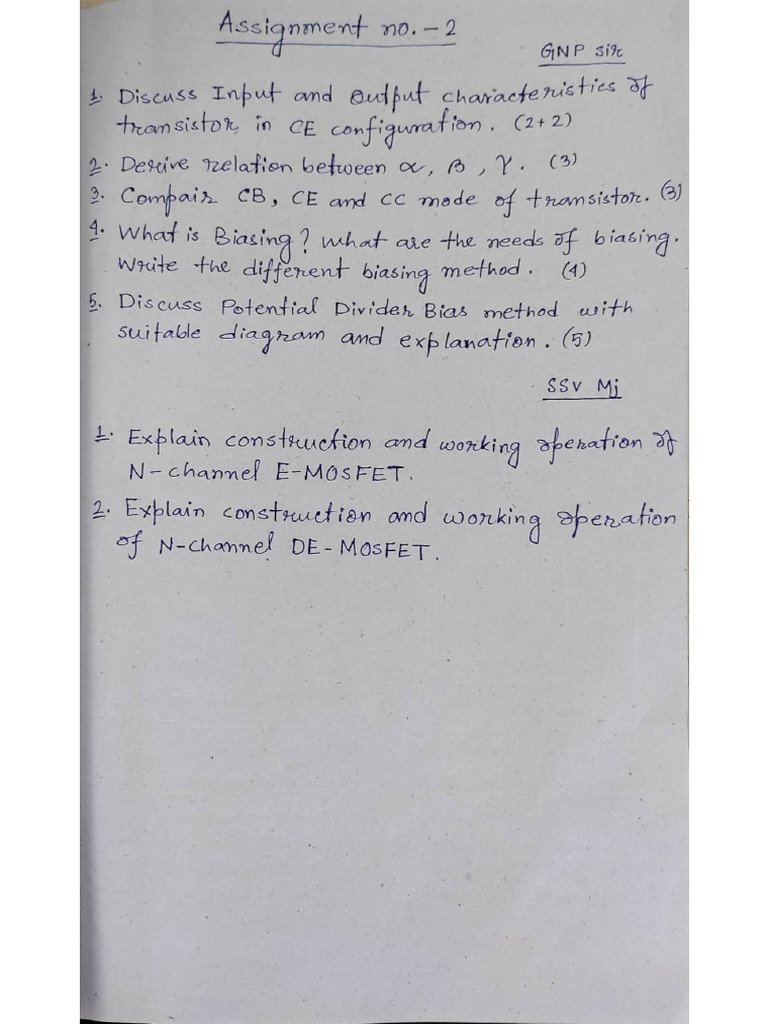 Assignment no. - 2
GNP sir
1. Discuss Input and Output characteristics of
transistor in CE configuration. (2+2)
2. Derive relation between α, β, γ. (3)
3. Compair CB, CE and CC mode of transistor. (3)
4. What is Biasing? What are the needs of biasing.
Write the different biasing method. (4)
5. Discuss Potential Divider Bias method with
suitable diagram and explanation. (5)
SSV Mj
1. Explain construction and working operation of
N-channel E-MOSFET.
2. Explain construction and working operation
of N-channel DE-MOSFET.